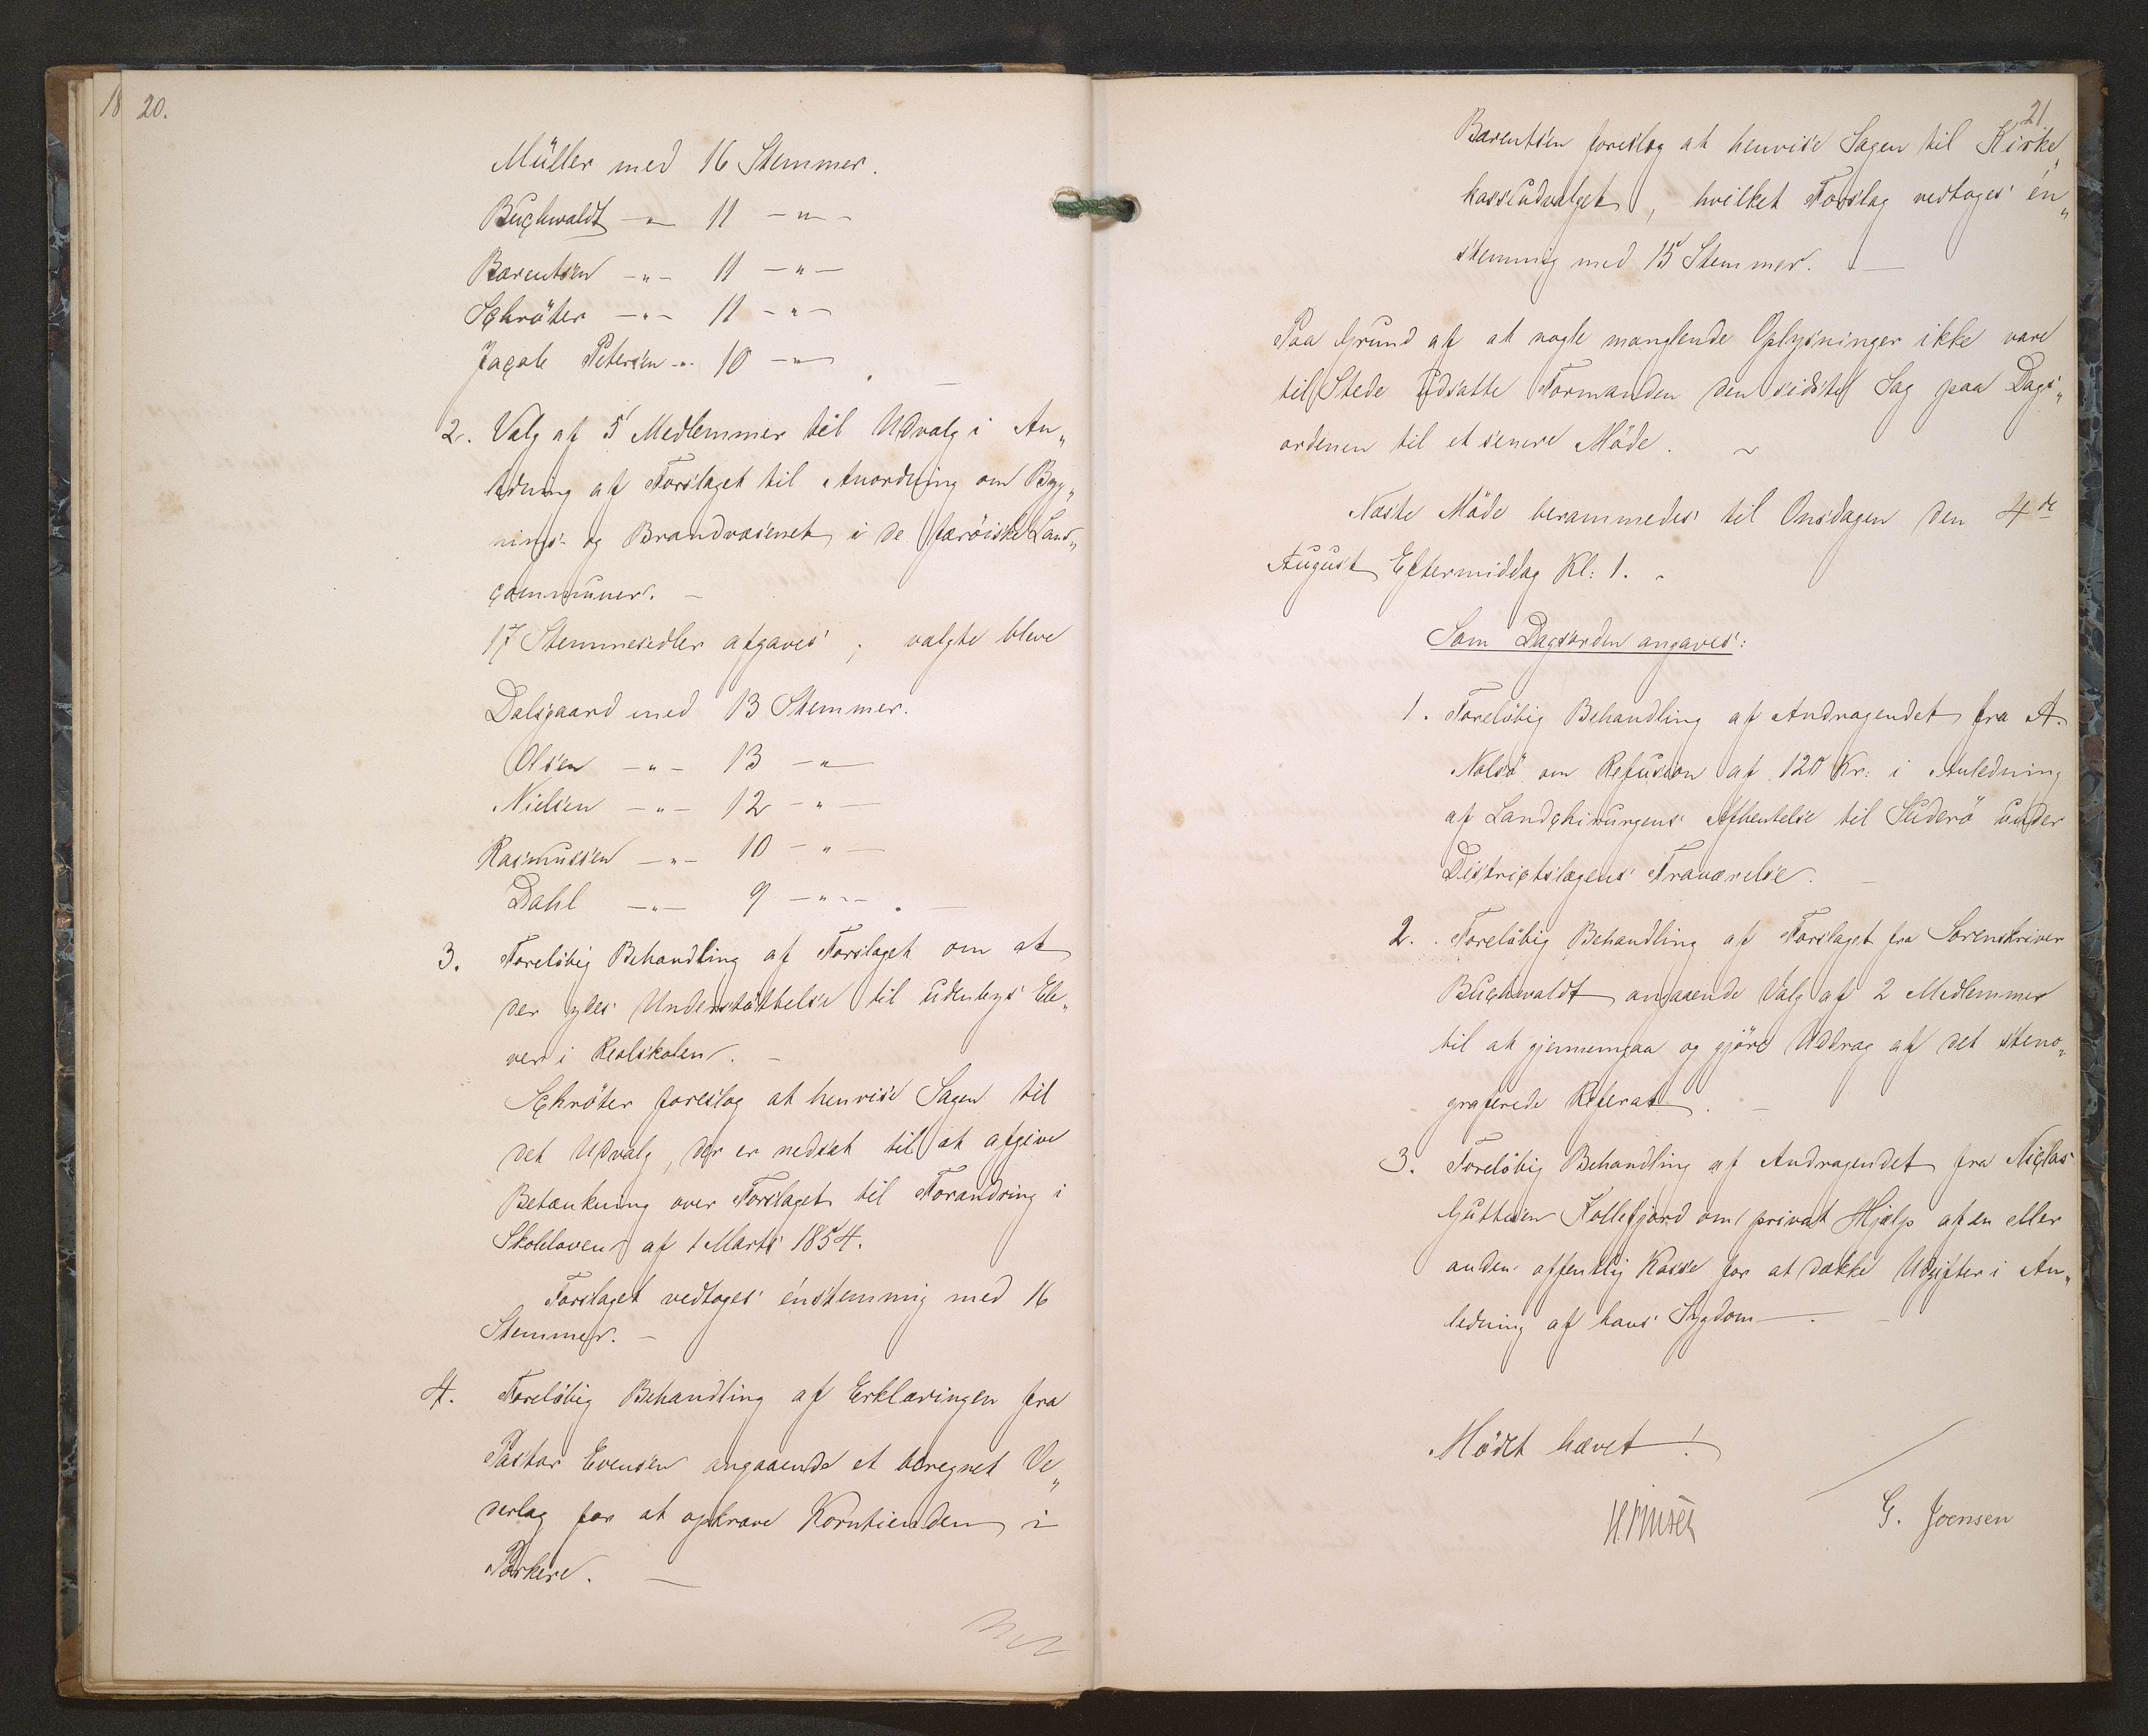 18 20.
Müller med 16 Stemmer.
Buchwaldt — " — 11 — " —
Bærentsen — " — 11 — " —
Schröter — " — 11 — " —
Jacob Petersen — " — 10 — " — .
2. Valg af 5 Medlemmer til Udvalg i An„
ledning af Forslaget til Anordning om Byg„
nings- og Brandvæsenet i de færöiske Land„
communer. —
17 Stemmesedler afgaves ; valgte bleve
Dalsgaard med 13 Stemmer.
Olsen — " — 13 — " —
Nielsen — " — 12 — " —
Rasmussen — " — 10 — " —
Dahl — " — 9 — " — . —
3. Foreløbig Behandling af Forslaget om at
der ydes Understøttelse til udenbys Ele„
ver i Realskolen. —
Schröter foreslog at henvise Sagen til
det Udvalg, der er nedsat til at afgive
Betænkning over Forslaget til Forandring i
Skoleloven af 1 Marts 1854.
Forslaget vedtoges énstemmig med 16
Stemmer. —
4. Foreløbig Behandling af Erklæringen fra
Pastor Evensen angaaende et beregnet Ve„
derlag for at opkræve Korntienden i
Porkere. —
21
Bærentsen foreslog at henvise Sagen til Kirke„
kasseudvalget, hvilket Forslag vedtoges én„
stemmig med 15 Stemmer. —
Paa Grund af at nogle manglende Oplysninger ikke vare
til Stede udsatte Formanden den sidste Sag paa Dags„
ordenen til et senere Möde. ~
Næste Möde berammedes til Onsdagen den 4de
August Eftermiddag Kl: 1. -
Som Dagsorden angaves:
1. Foreløbig Behandling af Andragendet fra A.
Nolsö om Refusion af 120 Kr: i Anledning
af Landchirurgens Afhentelse til Suderö under
Districtslægens Fraværelse. —
2. Foreløbig Behandling af Forslaget fra Sorenskriver
Buchwaldt angaaende Valg af 2 Medlemmer
til at gjennemgaa og gjöre Uddrag af det steno„
graferede Referat. —
3. Foreløbig Behandling af Andragendet fra Niclas
Guttesen Kollefjord om privat Hjælp af en eller
anden offentlig Kasse for at dække Udgifter i An„
ledning af hans Sygdom —. —
Mödet hævet!
G. Joensen